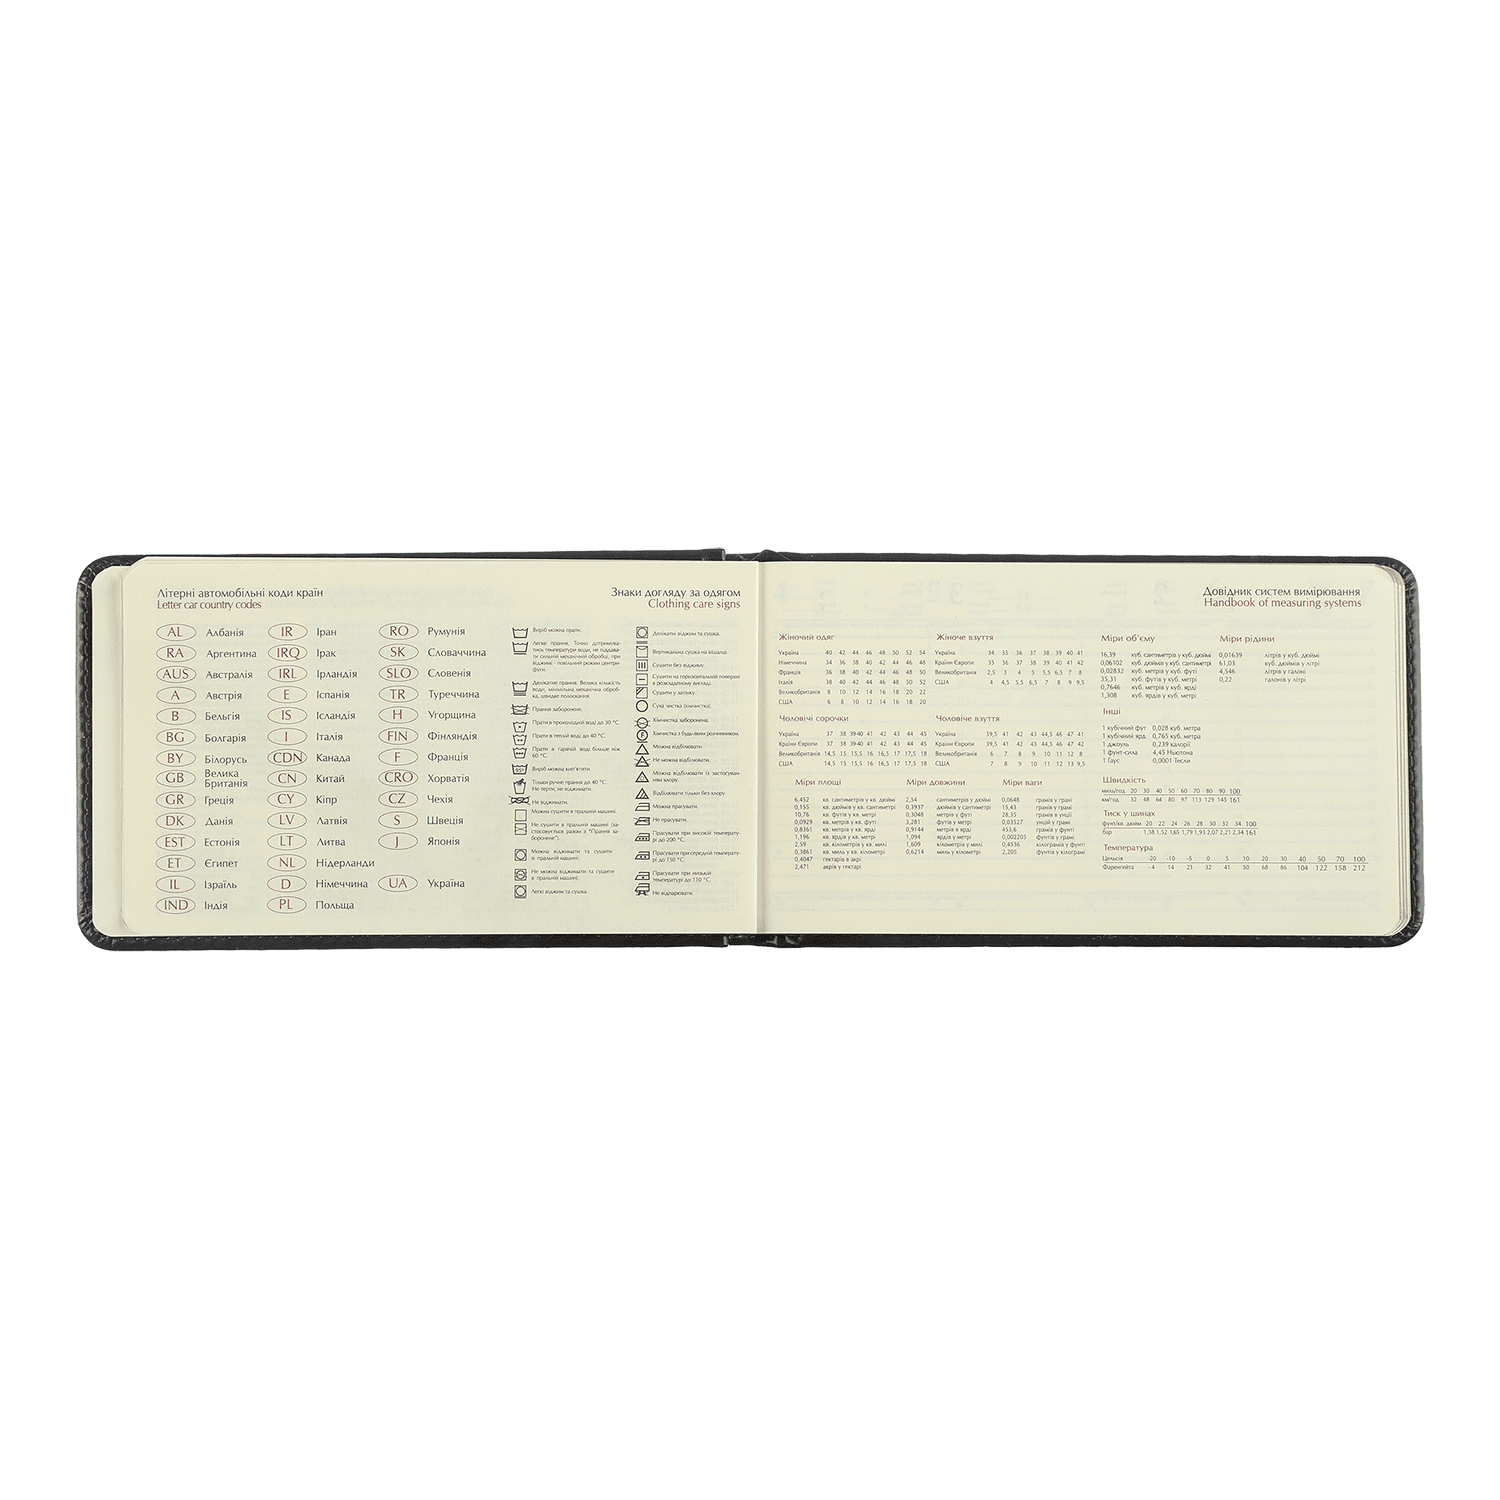 Літерні автомобільні коди країн
Letter car country codes
AL Албанія
RA Аргентина
AUS Австралія
A Австрія
B Бельгія
BG Болгарія
BY Білорусь
GB Велика
Британія
GR Греція
DK Данія
EST Естонія
ET Єгипет
IL Ізраїль
IND Індія
IR Іран
IRQ Ірак
IRL Ірландія
E Іспанія
IS Ісландія
I Італія
CDN Канада
CN Китай
CY Кіпр
LV Латвія
LT Литва
NL Нідерланди
D Німеччина
PL Польща
RO Румунія
SK Словаччина
SLO Словенія
TR Туреччина
H Угорщина
FIN Фінляндія
F Франція
CRO Хорватія
CZ Чехія
S Швеція
J Японія
UA Україна
Знаки догляду за одягом
Clothing care signs
Виріб можна прати.
Легке прання. Точно дотримува-
тись температури води, не піддава-
ти сильній механічній обробці, при
віджимі - повільний режим центри-
фуги.
Делікатне прання. Велика кількість
води, мінімальна механічна оброб-
ка, швидке полоскання.
Прання заборонене.
Прати в прохолодній воді до 30 °С.
Прати в теплій воді до 40 °С.
Прати в гарячій воді більше ніж
60 °С.
Виріб можна кип'ятити.
Тільки ручне прання до 40 °С.
Не терти, не віджимати.
Не віджимати.
Можна сушити в пральній машині.
Не сушити в пральній машині (за-
стосовується разом з "Прання за-
боронене").
Можна віджимати та сушити
в пральній машині.
Не можна віджимати та сушити
в пральній машині.
Легкі віджим та сушка.
Делікатні віджим та сушка.
Вертикальна сушка на вішалці.
Сушити без віджиму.
Сушити на горизонтальной поверхні
в розкладеному вигляді.
Сушити у затінку.
Суха чистка (хімчистка).
Хімчистка заборонена.
Хімчистка з будь-яким розчинником.
Можна відбілювати.
Не можна відбілювати.
Можна відбілювати із застосуван-
ням хлору.
Відбілювати тільки без хлору.
Можна прасувати.
Не прасувати.
Прасувати при високій температу-
рі до 200 °С.
Прасувати при середній температу-
рі до 150 °С.
Прасувати при низькій
температурі до 110 °С.
Не відпарювати.
Довідник систем вимірювання
Handbook of measuring systems
Жіночий одяг
Україна 40 42 44 46 48 50 52 54
Німеччина 34 36 38 40 42 44 46 48
Франція 36 38 40 42 44 46 48 50
Італія 38 40 42 44 46 48 50 52
Великобританія 8 10 12 14 16 18 20 22
США 6 8 10 12 14 16 18 20
Жіноче взуття
Україна 34 35 36 37 38 39 40 41
Країни Європи 35 36 37 38 39 40 41 42
Великобританія 2,5 3 4 5 5,5 6,5 7 8
США 4 4,5 5,5 6,5 7 8 9 9,5
Чоловічі сорочки
Україна 37 38 39-40 41 42 43 44 45
Країни Європи 37 38 39-40 41 42 43 44 45
Великобританія 14,5 15 15,5 16 16,5 17 17,5 18
США 14,5 15 15,5 16 16,5 17 17,5 18
Чоловіче взуття
Україна 39,5 41 42 43 44,5 46 47 41
Країни Європи 39,5 41 42 43 44,5 46 47 42
Великобританія 6 7 8 9 10 11 12 8
США 7 8 9 10 11 12 13 9,5
Міри площі
6,452 кв. сантиметрів у кв. дюймі
0,155 кв. дюймів у кв. сантиметрі
10,76 кв. футів у кв. метрі
0,0929 кв. метрів у кв. футі
0,8361 кв. метрів у кв. ярді
1,196 кв. ярдів у кв. метрі
2,59 кв. кілометрів у кв. милі
0,3861 кв. миль у кв. кілометрі
0,4047 гектарів в акрі
2,471 акрів у гектарі
Міри довжини
2,54 сантиметрів у дюймі
0,3937 дюймів у сантиметрі
0,3048 метрів у футі
3,281 футів у метрі
0,9144 метрів в ярді
1,094 ярдів у метрі
1,609 кілометрів у милі
0,6214 миль у кілометрі
Міри ваги
0,0648 грамів у грані
15,43 гранів у грамі
28,35 грамів в унції
0,03527 унцій у грамі
453,6 грамів у фунті
0,002205 фунтів у грамі
0,4536 кілограмів у фунті
2,205 фунтів у кілограмі
Міри об'єму
16,39 куб. сантиметрів у куб. дюймі
0,06102 куб. дюймів у куб. сантиметрі
0,02832 куб. метрів у куб. футі
35,31 куб. футів у куб. метрі
0,7646 куб. метрів у куб. ярді
1,308 куб. ярдів у куб. метрі
Міри рідини
0,01639 літрів у куб. дюймі
61,03 куб. дюймів у літрі
4,546 літрів у галоні
0,22 галонів у літрі
Інші
1 кубічний фут 0,028 куб. метра
1 кубічний ярд 0,765 куб. метра
1 джоуль 0,239 калорії
1 фунт-сила 4,45 Ньютона
1 Гаус 0,0001 Тесли
Швидкість
миль/год 20 30 40 50 60 70 80 90 100
км/год 32 48 64 80 97 113 129 145 161
Тиск у шинах
фунт/кв. дюйм 20 22 24 26 28 30 32 34 100
бар 1,38 1,52 1,65 1,79 1,93 2,07 2,21 2,34 161
Температура
Цельсія -20 -10 -5 0 5 10 20 30 40 50 70 100
Фаренгейта -4 14 23 32 41 50 68 86 104 122 158 212